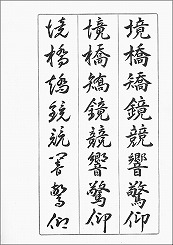 境橋矯鏡競響驚仰
境橋矯鏡競響驚仰
境橋矯鏡競響驚仰